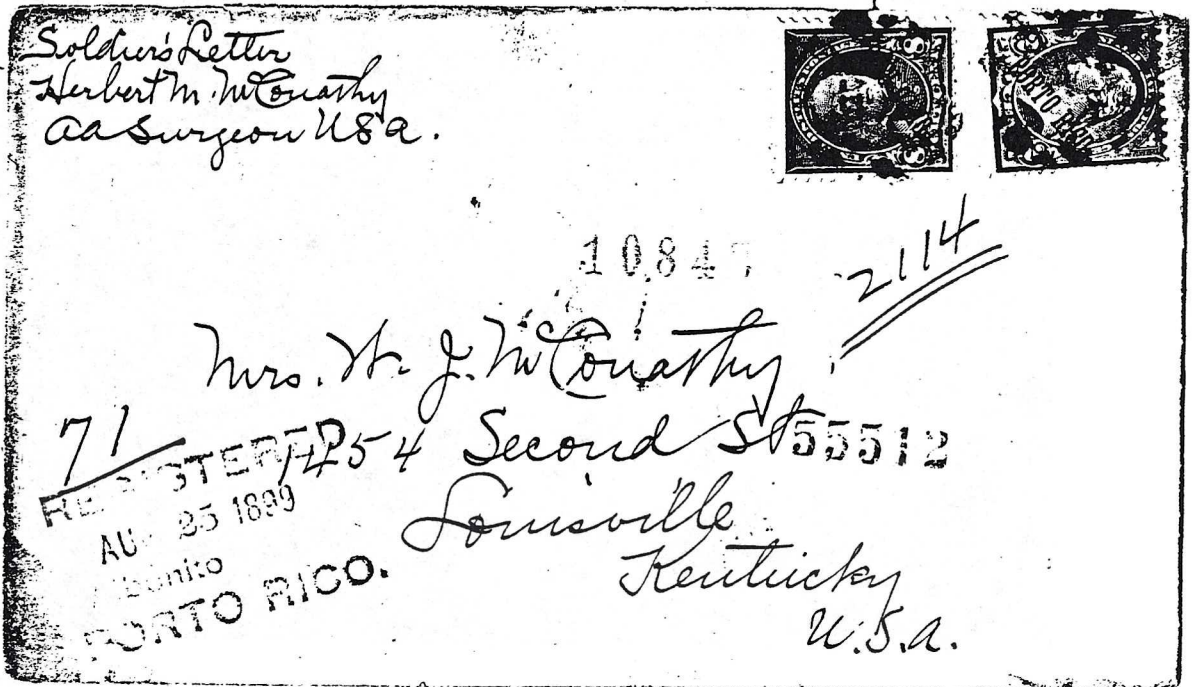 Soldier's Letter
Herbert M. McConathy
Aa Surgeon USA.
PORTO RICO
1084
2114
Mrs. W. J. McConathy
1454 Second St
55512
Louisville
Kentucky
U.S.A.
71
REGISTERED
AU 25 1899
PORTO RICO.